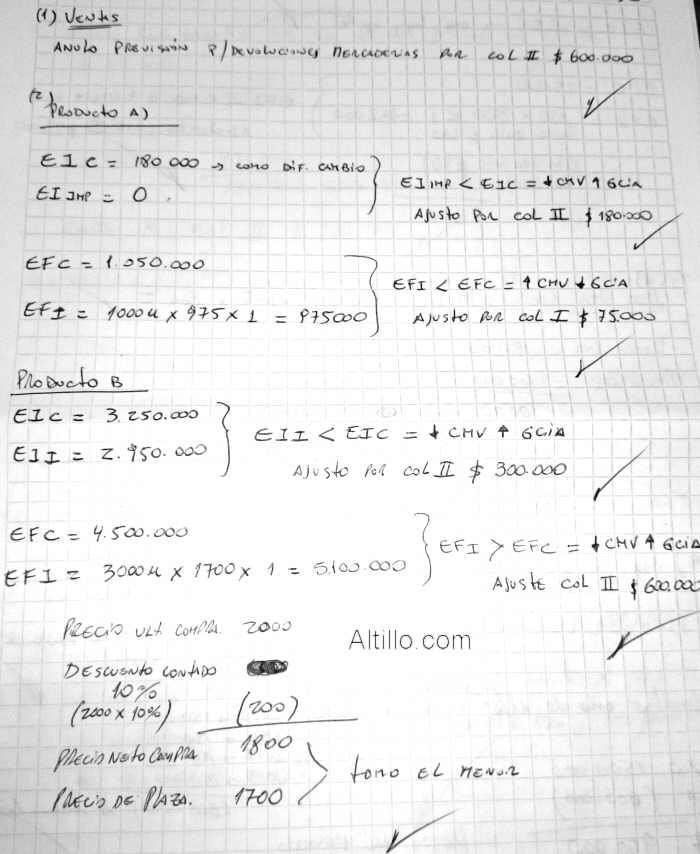 (1) VENTAS
ANULO PREVISIÓN P/DEVOLUCIONES MERCADERIAS POR COL II $ 600.000
(2)
PRODUCTO A)
EIC = 180 000 → COMO DIF. CAMBIO
EI IMP = 0
EI IMP < EIC = ↓ CMV ↑ GCIA
AJUSTO POR COL II $ 180.000
EFC = 1.050.000
EFI = 1000u x 975 x 1 = 975000
EFI < EFC = ↑ CMV ↓ GCIA
AJUSTO POR COL I $ 75.000
PRODUCTO B
EIC = 3.250.000
EII = 2.950.000
EII < EIC = ↓ CMV ↑ GCIA
AJUSTO POR COL II $ 300.000
EFC = 4.500.000
EFI = 3000u x 1700 x 1 = 5.100.000
EFI > EFC = ↓ CMV ↑ GCIA
AJUSTE COL II $ 600.000
PRECIO ULT. COMPRA 2000
Altillo.com
DESCUENTO CONTADO
10%
(2000 x 10%) (200)
1800
PRECIO NETO COMPRA
PRECIO DE PLAZA. 1700
TOMO EL MENOR